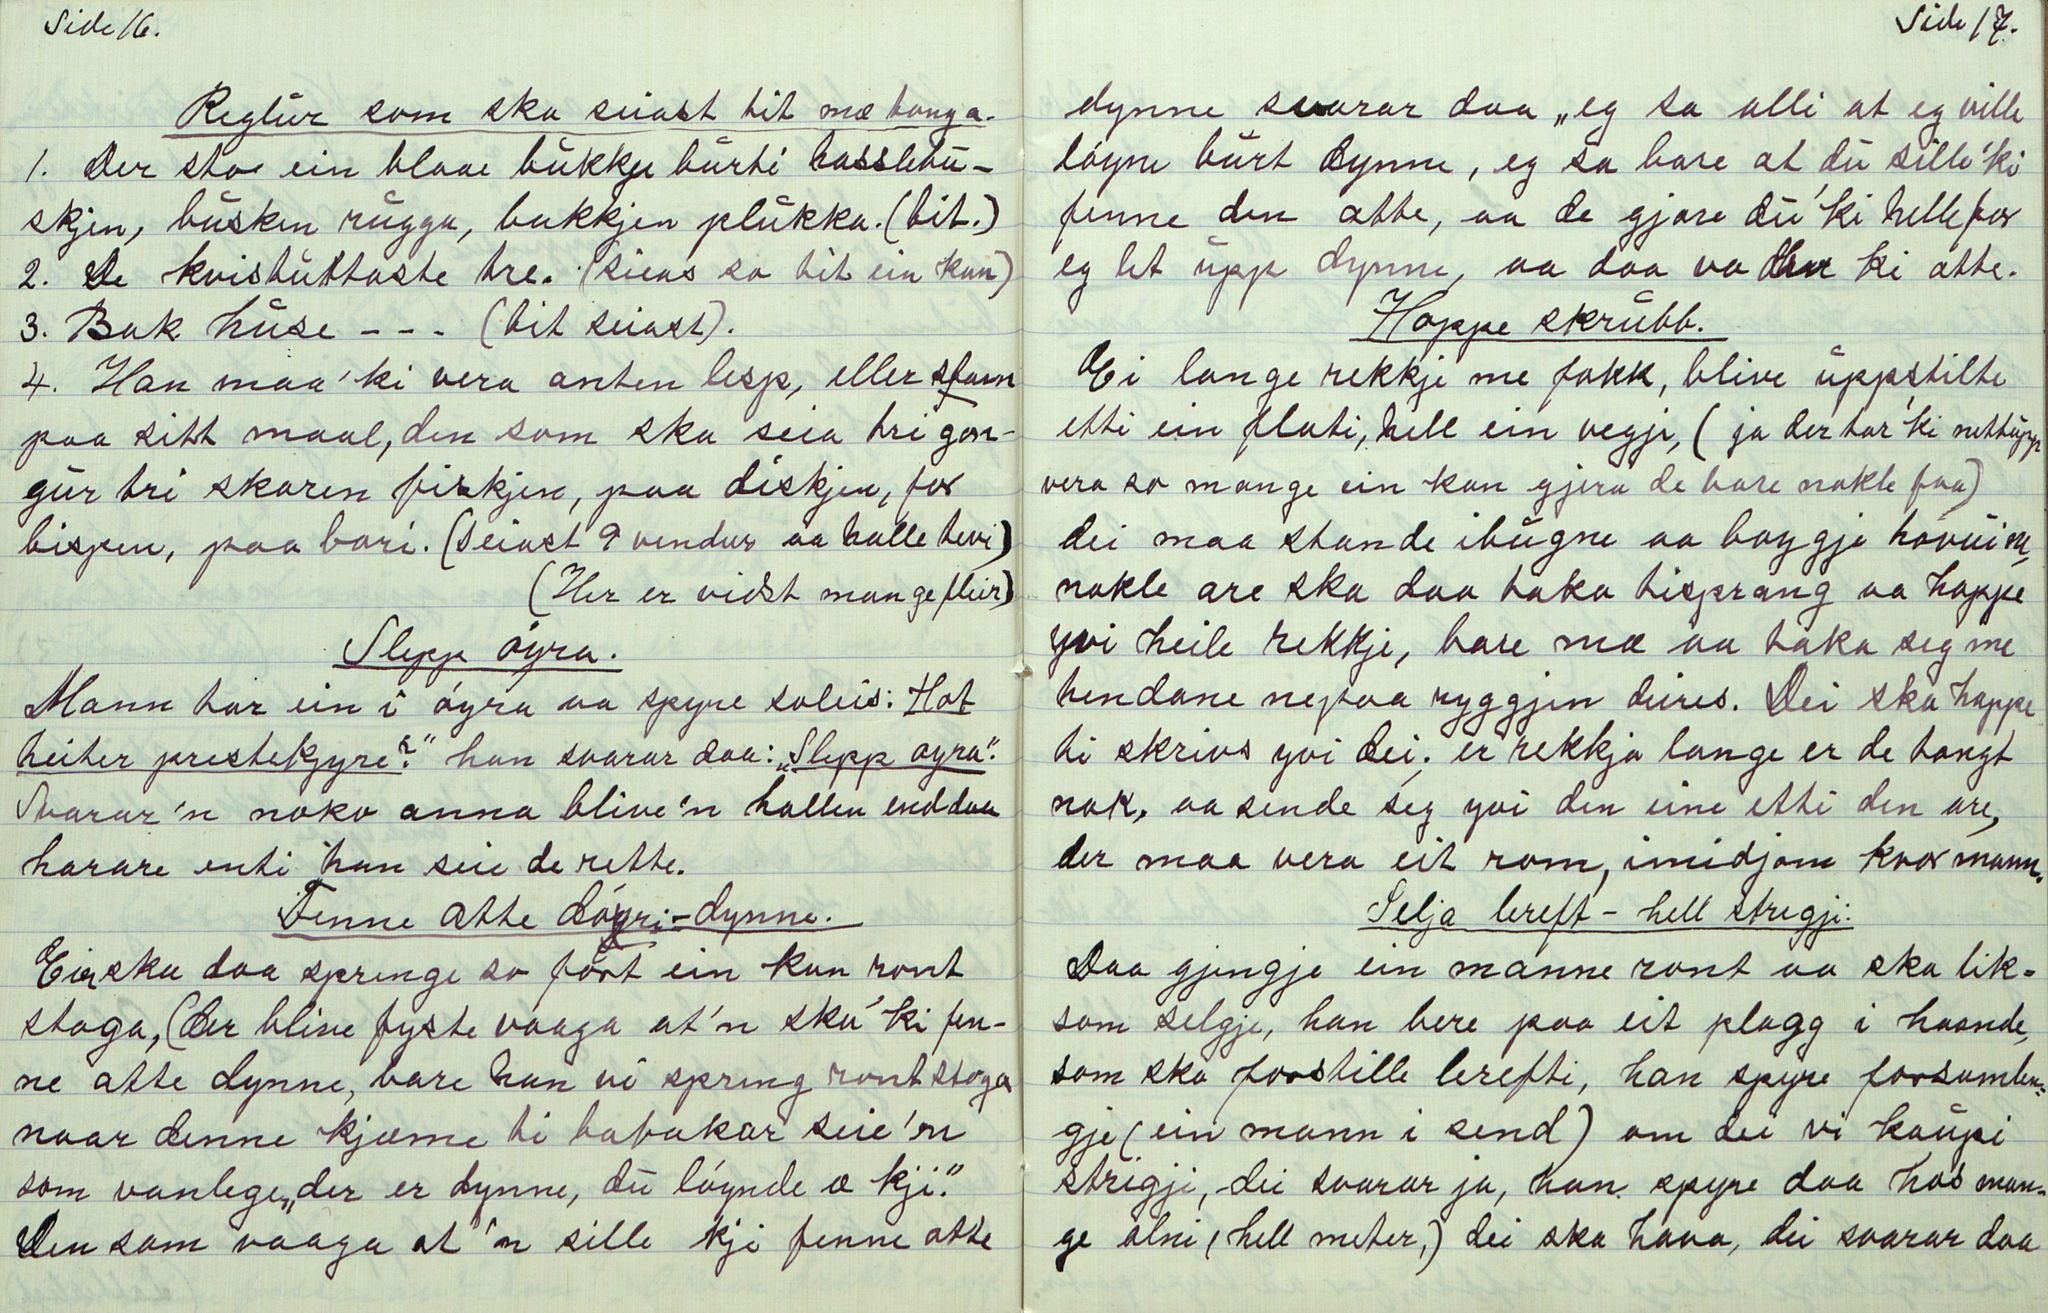 Side 16.
Reglür som ska seiast tit mæ tonga.
1. Der sto ein blaae bükkje bürti hasslebü-
skjen, büsken rügga, bukkjen plükka. (tit.)
2. De kvistüttaste tre. (sieas so tit ein kan)
3. Bak hüse - - - (tit seiast).
4. Han maa'ki vera anten lesp, eller stam
paa sitt maal, den som ska seia tri gon-
gür tri skaren firkjen, paa diskjen, for
bispen, paa bori. (Seiast 9 vendur aa halle tevi)
(Her er vidst mange fleir)
Slepp óyra.
Mann tar ein i óyra aa spyre soleis: Hot
heiter prestekjyre?" han svarar daa: „Slepp oyra".
Svarar'n noko anna blive'n hallen enddaa
harare enti han seie de rette.
Fenne atte döyri-dynne.
Ein ska daa springe so fort ein kan ront
stoga, (der blive fyste vaaga at'n ska'ki fen-
ne atte dynne, bare han vi spring ront stoga
naar denne kjæme ti bafakar seie'n
som vanlege, „der er dynne, dü lóynde æ kji."
Den som vaaga at'n sille kji fenne atte
Side 17.
dynne svarar daa „eg sa alli at eg ville
lóyne bürt dynne, eg sa bare at dü sille'ki
fenne den atte, aa de gjore dü'ki helle for
eg let üpp dynne, aa daa va der ki atte.
Hoppe skrübb.
Ei lange rekkje me fokk, blive üppstilte
etti ein flati, hell ein vegji, (ja der tar'ki nettüpp
vera so mange ein kan gjera de bare nokle faa)
dei maa stande ibügne aa boyggje hovüi ne,
nokle are ska daa taka tisprang aa hoppe
yvi heile rekkje, bare mæ aa taka seg me
hendane nepaa ryggjen deires. Dei ska hoppe
ti skrivs yvi dei; er rekkja lange er de tongt
nok, aa sende seg yvi den eine etti den are,
der maa vera eit rom, imidjom kvor mann.
Selja lereft - hell stregji.
Daa gjengje ein manne ront aa ska lik-
som selgje, han bere paa eit plagg i haande,
som ska forstille lerefti, han spyre forsamlen-
gje (ein mann i send) om dei vi kaüpi
strigji, dei svarar ja, han spyre daa hos man-
ge alni (hell meter,) dei ska hava, dei svarar daa